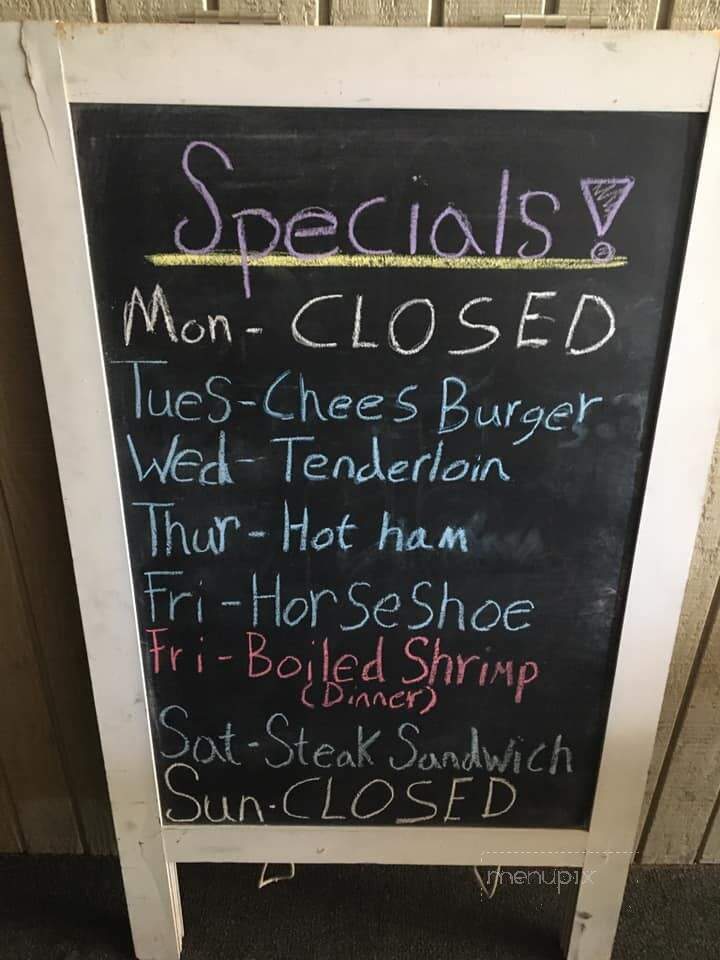 Specials!
Mon- CLOSED
Tues-Chees Burger
Wed- Tenderloin
Thur- Hot ham
Fri-HorSeShoe
Fri-Boiled Shrimp
(Dinner)
Sat-Steak Sandwich
Sun-CLOSED
menupix